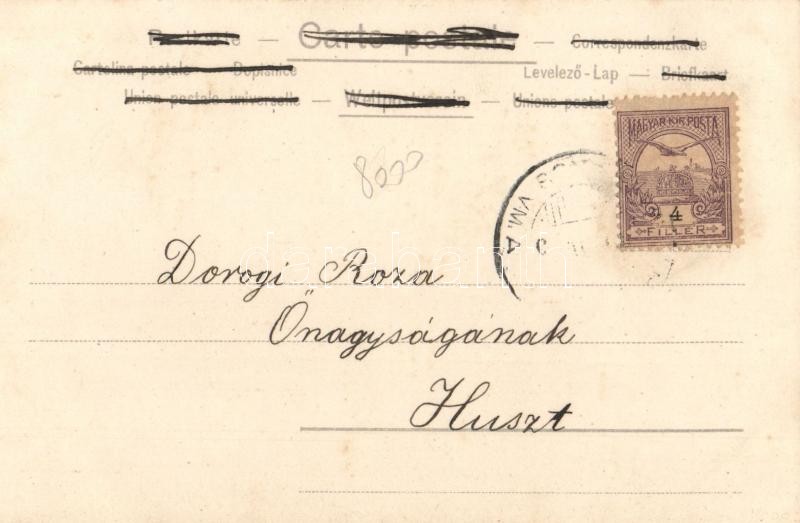 Postkarte — Carte postale — Correspondenzkarte
Cartolina postale — Dopisnice Levelező-Lap — Briefkaart
Union postale universelle — Weltpostverein — Unione postale
MAGYAR KIR. POSTA
4
FILLÉR
VM. A
8000
Dorogi Roza
Őnagyságának
Huszt